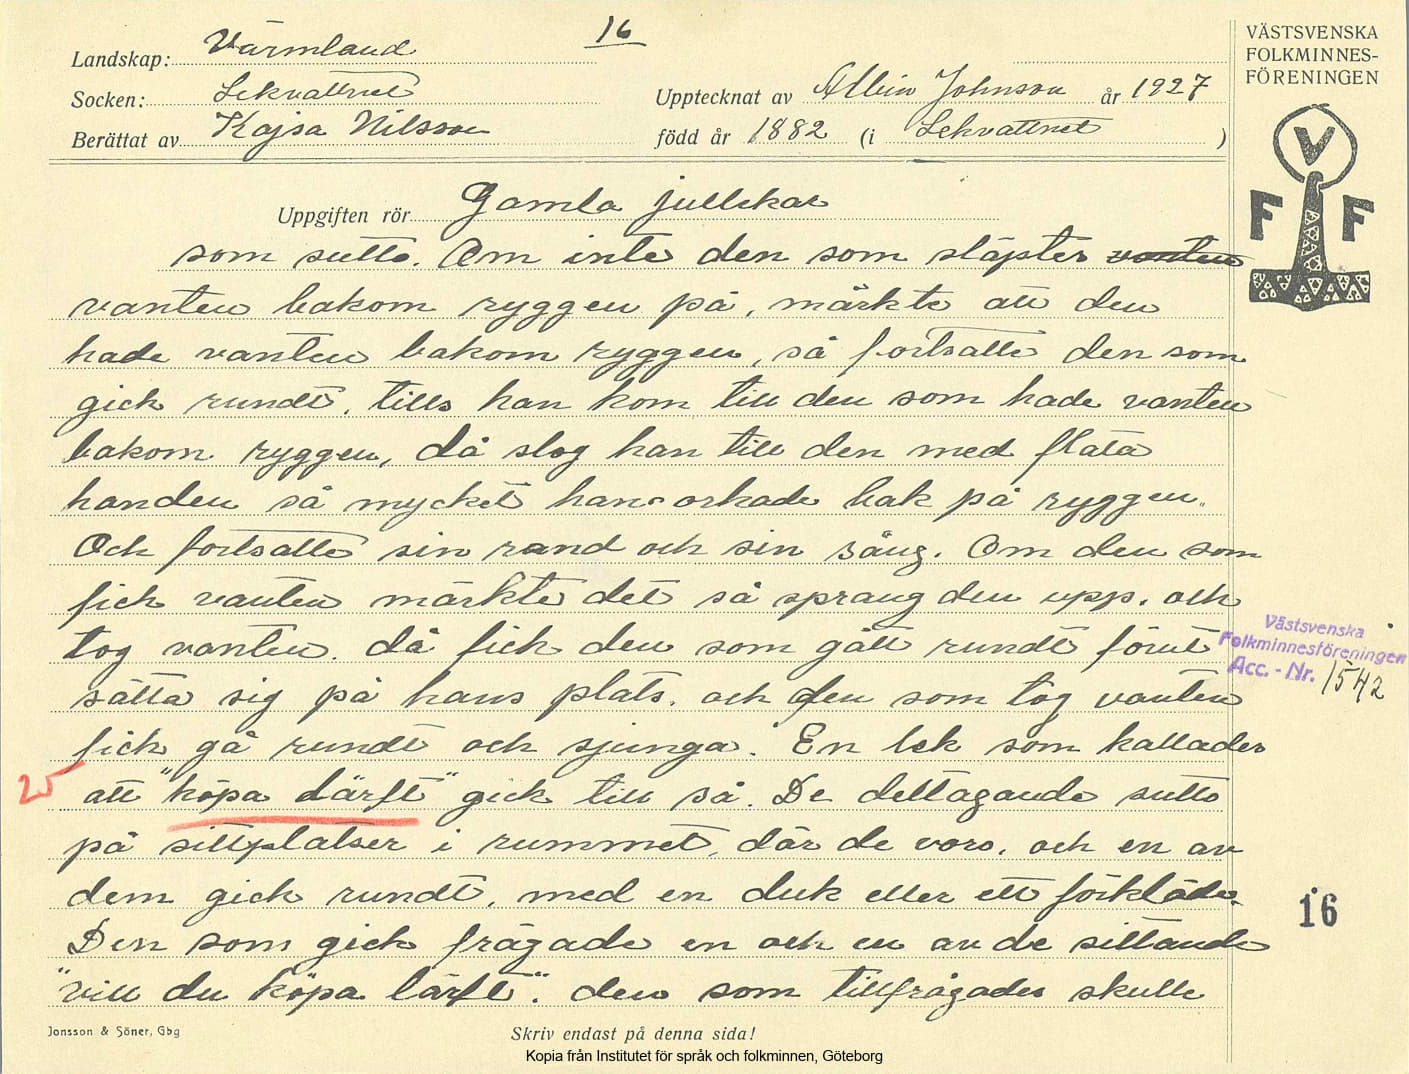 16
Landskap: Värmland
Socken: Lekvattnet
Berättat av Kajsa Nilsson
Upptecknat av Albin Johnson år 1927
född år 1882 (i Lekvattnet )
VÄSTSVENSKA
FOLKMINNES-
FÖRENINGEN
V
F F
Uppgiften rör Gamla jullekar
som sutto. Om inte den som släptes vanten
vanten bakom ryggen på, märkte att den
hade vanten bakom ryggen, så fortsatte den som
gick rundt, tills han kom till den som hade vanten
bakom ryggen, då slog han till den med flata
handen så mycket han orkade bak på ryggen.
Och fortsatte sin rand och sin sång. Om den som
fick vanten märkte det så sprang den upp. och
tog vanten. då fick den som gått rundt förut
sätta sig på hans plats. och den som tog vanten
fick gå rundt och sjunga. En lek som kallades
25 att "köpa därft" gick till så. De deltagande sutto
på sittplatser i rummet, där de voro, och en av
dem gick rundt, med en duk eller ett förkläde.
Den som gick frågade en och en av de sittande
"vill du köpa lärft". den som tillfrågades skulle
Västsvenska
Folkminnesföreningen
Acc. - Nr. 1542
16
Jonsson & Söner, Gbg
Skriv endast på denna sida!
Kopia från Institutet för språk och folkminnen, Göteborg